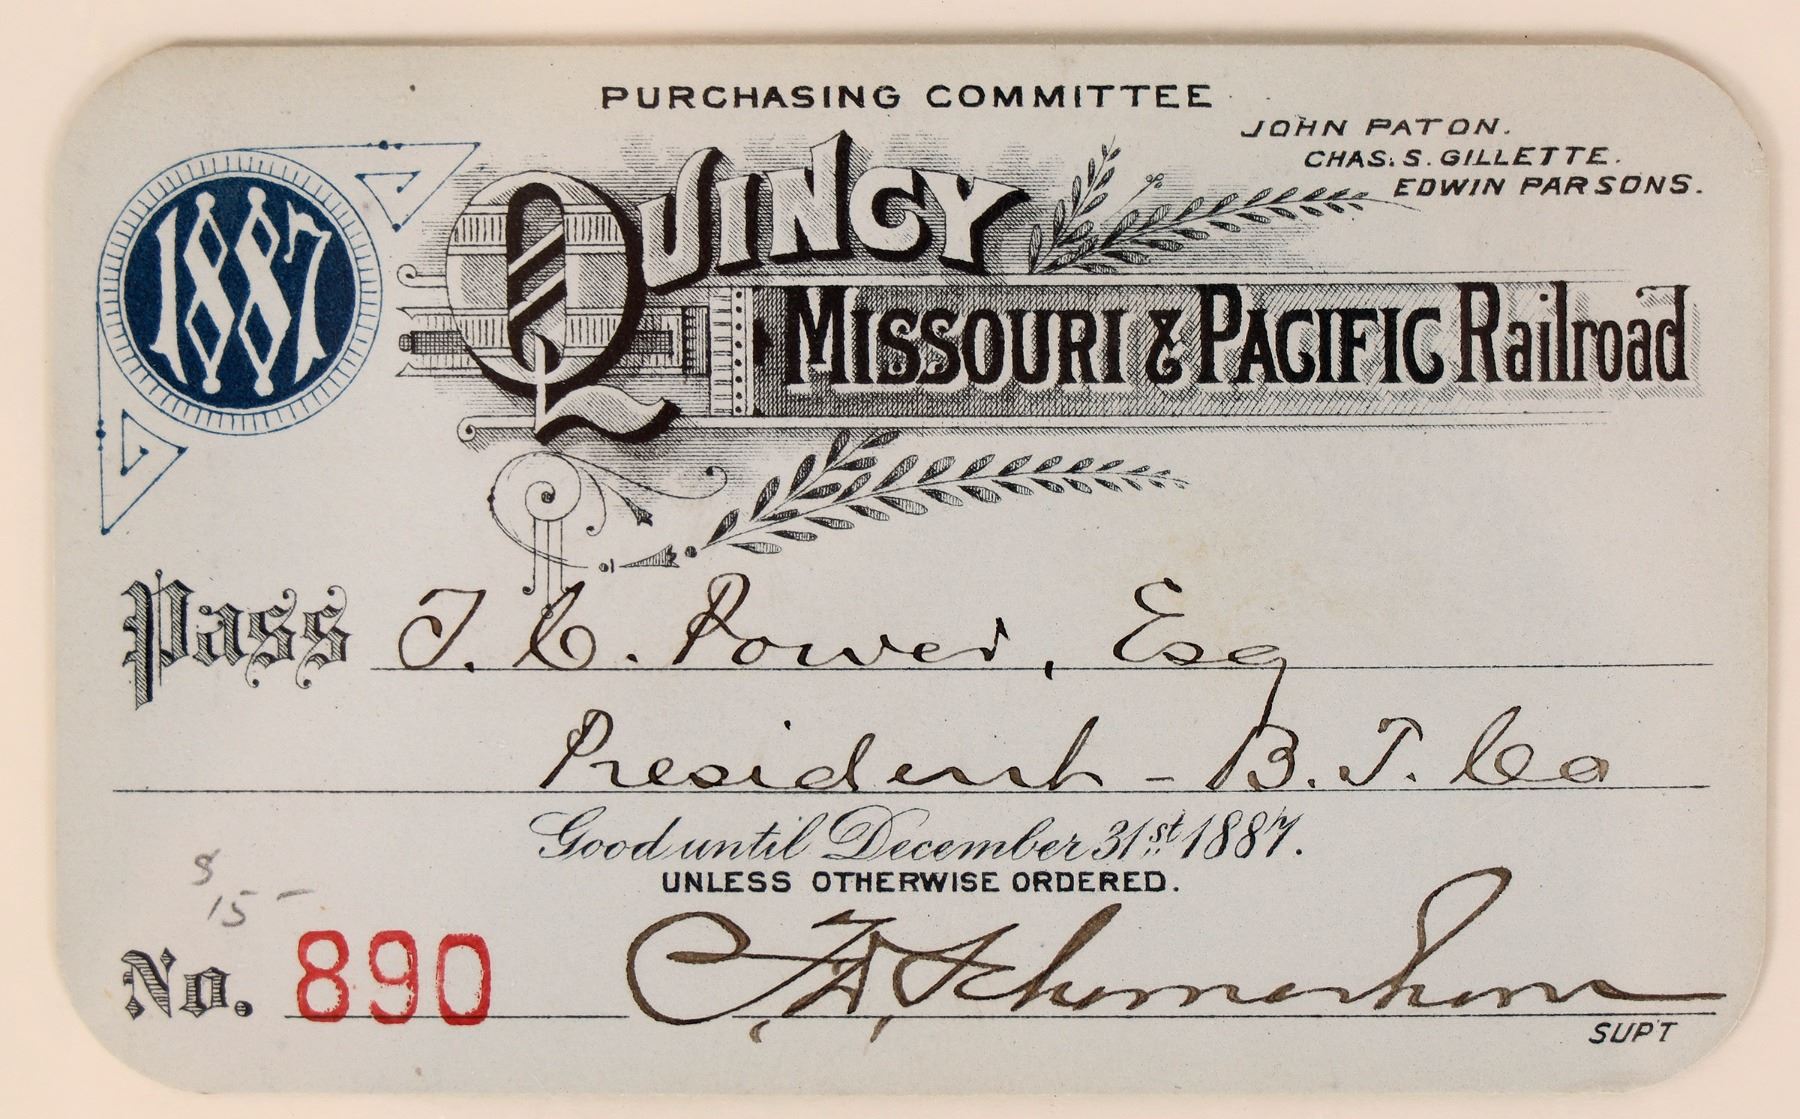 PURCHASING COMMITTEE
JOHN PATON.
CHAS. S. GILLETTE.
EDWIN PARSONS.
1887
QUINCY
MISSOURI & PACIFIC Railroad
Pass T. C. Power, Esq
President - B. T. Co
Good until December 31st 1887.
UNLESS OTHERWISE ORDERED.
8
15 -
No. 890
SUP'T